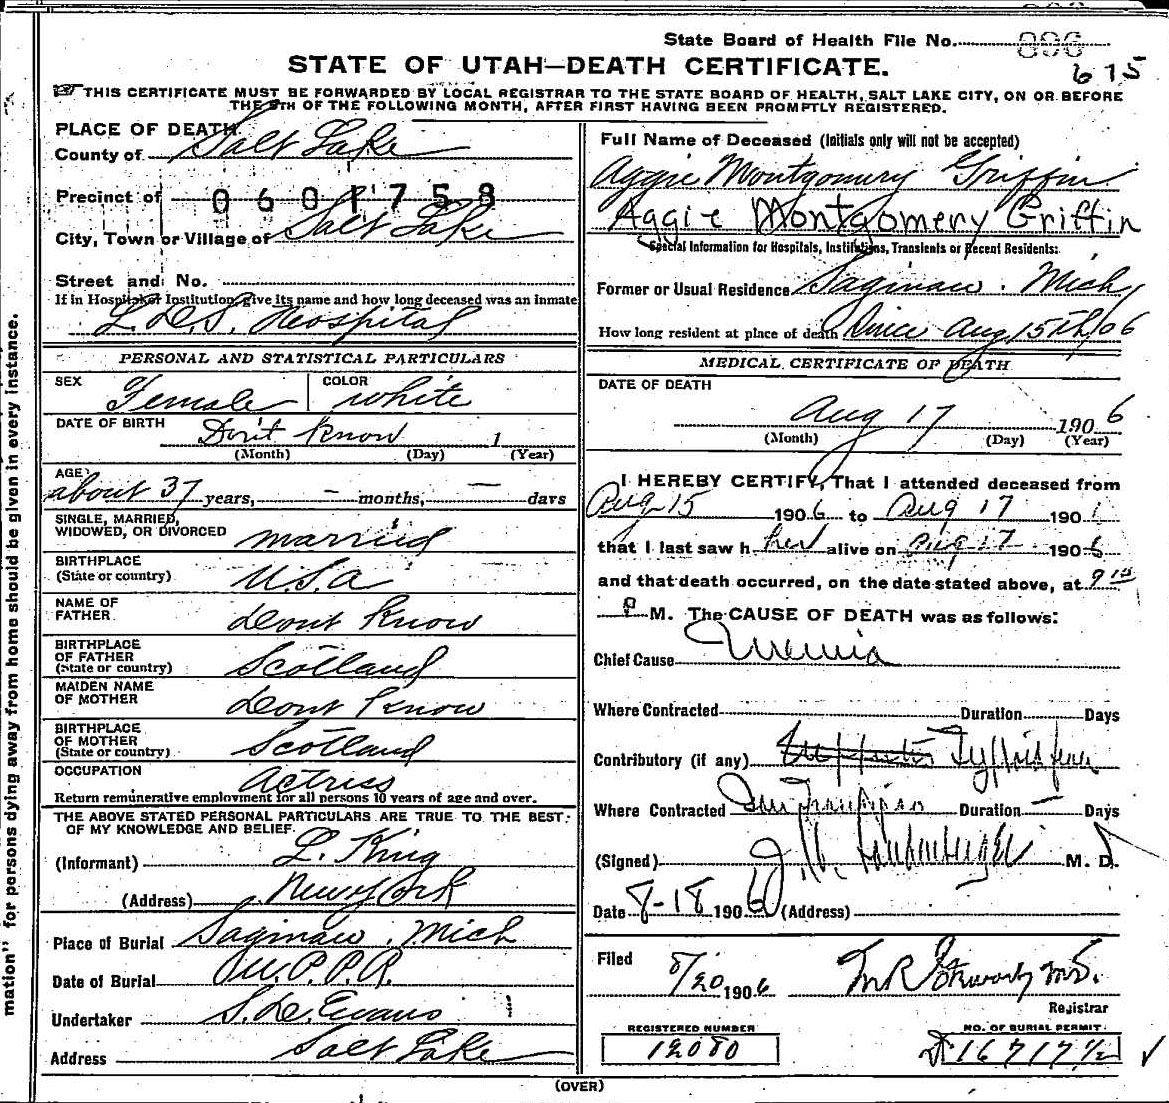 State Board of Health File No. 896
675
STATE OF UTAH—DEATH CERTIFICATE.
THIS CERTIFICATE MUST BE FORWARDED BY LOCAL REGISTRAR TO THE STATE BOARD OF HEALTH, SALT LAKE CITY, ON OR BEFORE
THE 5TH OF THE FOLLOWING MONTH, AFTER FIRST HAVING BEEN PROMPTLY REGISTERED.
PLACE OF DEATH.
County of Salt Lake
Precinct of 0601758
City, Town or Village of Salt Lake
Street and No.
If in Hospital or Institution, give its name and how long deceased was an inmate
L.D.S. Hospital
PERSONAL AND STATISTICAL PARTICULARS
SEX Female COLOR White
DATE OF BIRTH Don't Know 1
(Month) (Day) (Year)
AGE
about 37 years, - months, - days
SINGLE, MARRIED,
WIDOWED, OR DIVORCED married
BIRTHPLACE
(State or country) U.S.A
NAME OF
FATHER Dont Know
BIRTHPLACE
OF FATHER
(State or country) Scotland
MAIDEN NAME
OF MOTHER Dont Know
BIRTHPLACE
OF MOTHER
(State or country) Scotland
OCCUPATION Actress
Return remunerative employment for all persons 10 years of age and over.
THE ABOVE STATED PERSONAL PARTICULARS ARE TRUE TO THE BEST
OF MY KNOWLEDGE AND BELIEF.
(Informant) L. King
(Address) New York
Place of Burial Saginaw, Mich
Date of Burial
Undertaker S. D. Evans
Address Salt Lake
Full Name of Deceased (Initials only will not be accepted)
Aggie Montgomery Griffin
Aggie Montgomery Griffin
Special Information for Hospitals, Institutions, Transients or Recent Residents:
Former or Usual Residence Saginaw. Mich
How long resident at place of death Since Aug 15th, 06
MEDICAL CERTIFICATE OF DEATH
DATE OF DEATH
Aug 17 1906
(Month) (Day) (Year)
I HEREBY CERTIFY, That I attended deceased from
Aug 15 1906 to Aug 17 190
that I last saw her alive on Aug 17 1906
and that death occurred, on the date stated above, at 9 10
P M. The CAUSE OF DEATH was as follows:
Chief Cause Uremia
Where Contracted Duration Days
Contributory (if any) Typhoid fever
Where Contracted San Francisco Duration — Days
(Signed) M. D.
Date 8-18 1906 (Address)
Filed 8/20 1906
Registrar
REGISTERED NUMBER
12080
NO. OF BURIAL PERMIT
16717 1/2
(OVER)
mation" for persons dying away from home should be given in every instance.